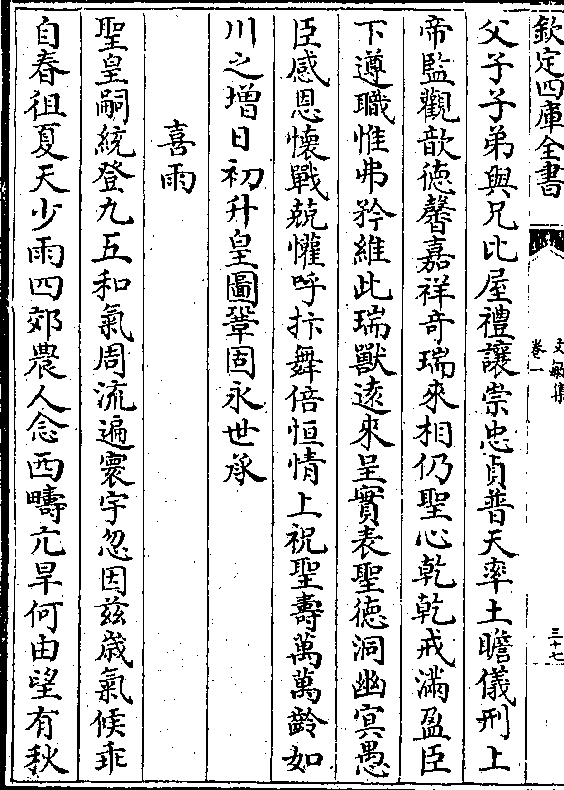 欽定四庫全書
文敏集
卷一
三十七
父子子弟與兄比屋禮讓崇忠貞普天率土瞻儀刑上
帝監觀歆徳馨嘉祥竒瑞來相仍聖心乾乾戒滿盈臣
下遵職惟弗矜維此瑞獸逺來呈實表聖徳洞幽冥愚
臣感恩懐戰兢懽呼抃舞倍恒情上祝聖壽萬萬齡如
川之增日初升皇圖鞏固永世承
喜雨
聖皇嗣統登九五和氣周流遍寰宇忽因兹歲氣候乖
自春徂夏天少雨四郊農人念西疇亢旱何由望有秋